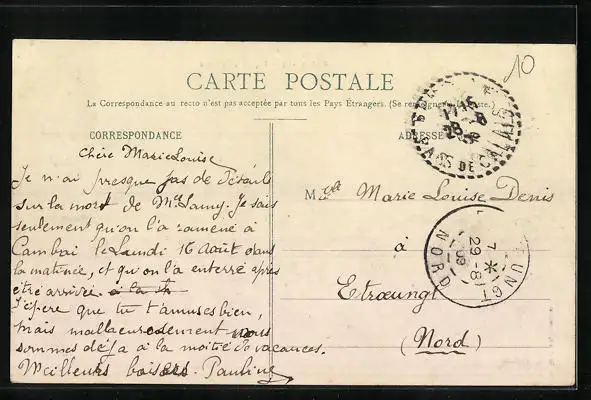 10
CARTE POSTALE
La Correspondance au recto n'est pas acceptée par tous les Pays Étrangers. (Se renseigner à la Poste.)
CORRESPONDANCE
ADRESSE
17 15
28 -8
PAS DE CALAIS
Chère Marie Louise
Je n'ai presque pas de détails
sur la mort de Mr Lamy. Je sais
seulement qu'on l'a ramené à
Cambrai le Lundi 16 Août dans
la matinée, et qu'on l'a enterré après
être arrivée. à la
J'éspère que tu t'amuses bien,
mais malheureusement nous
sommes déja à la moitié de vacances.
Meilleurs baisers. Pauline
Mlle Marie Louise Denis
à
Etrœungt
(Nord)
7 *
29 -8
09
NORD